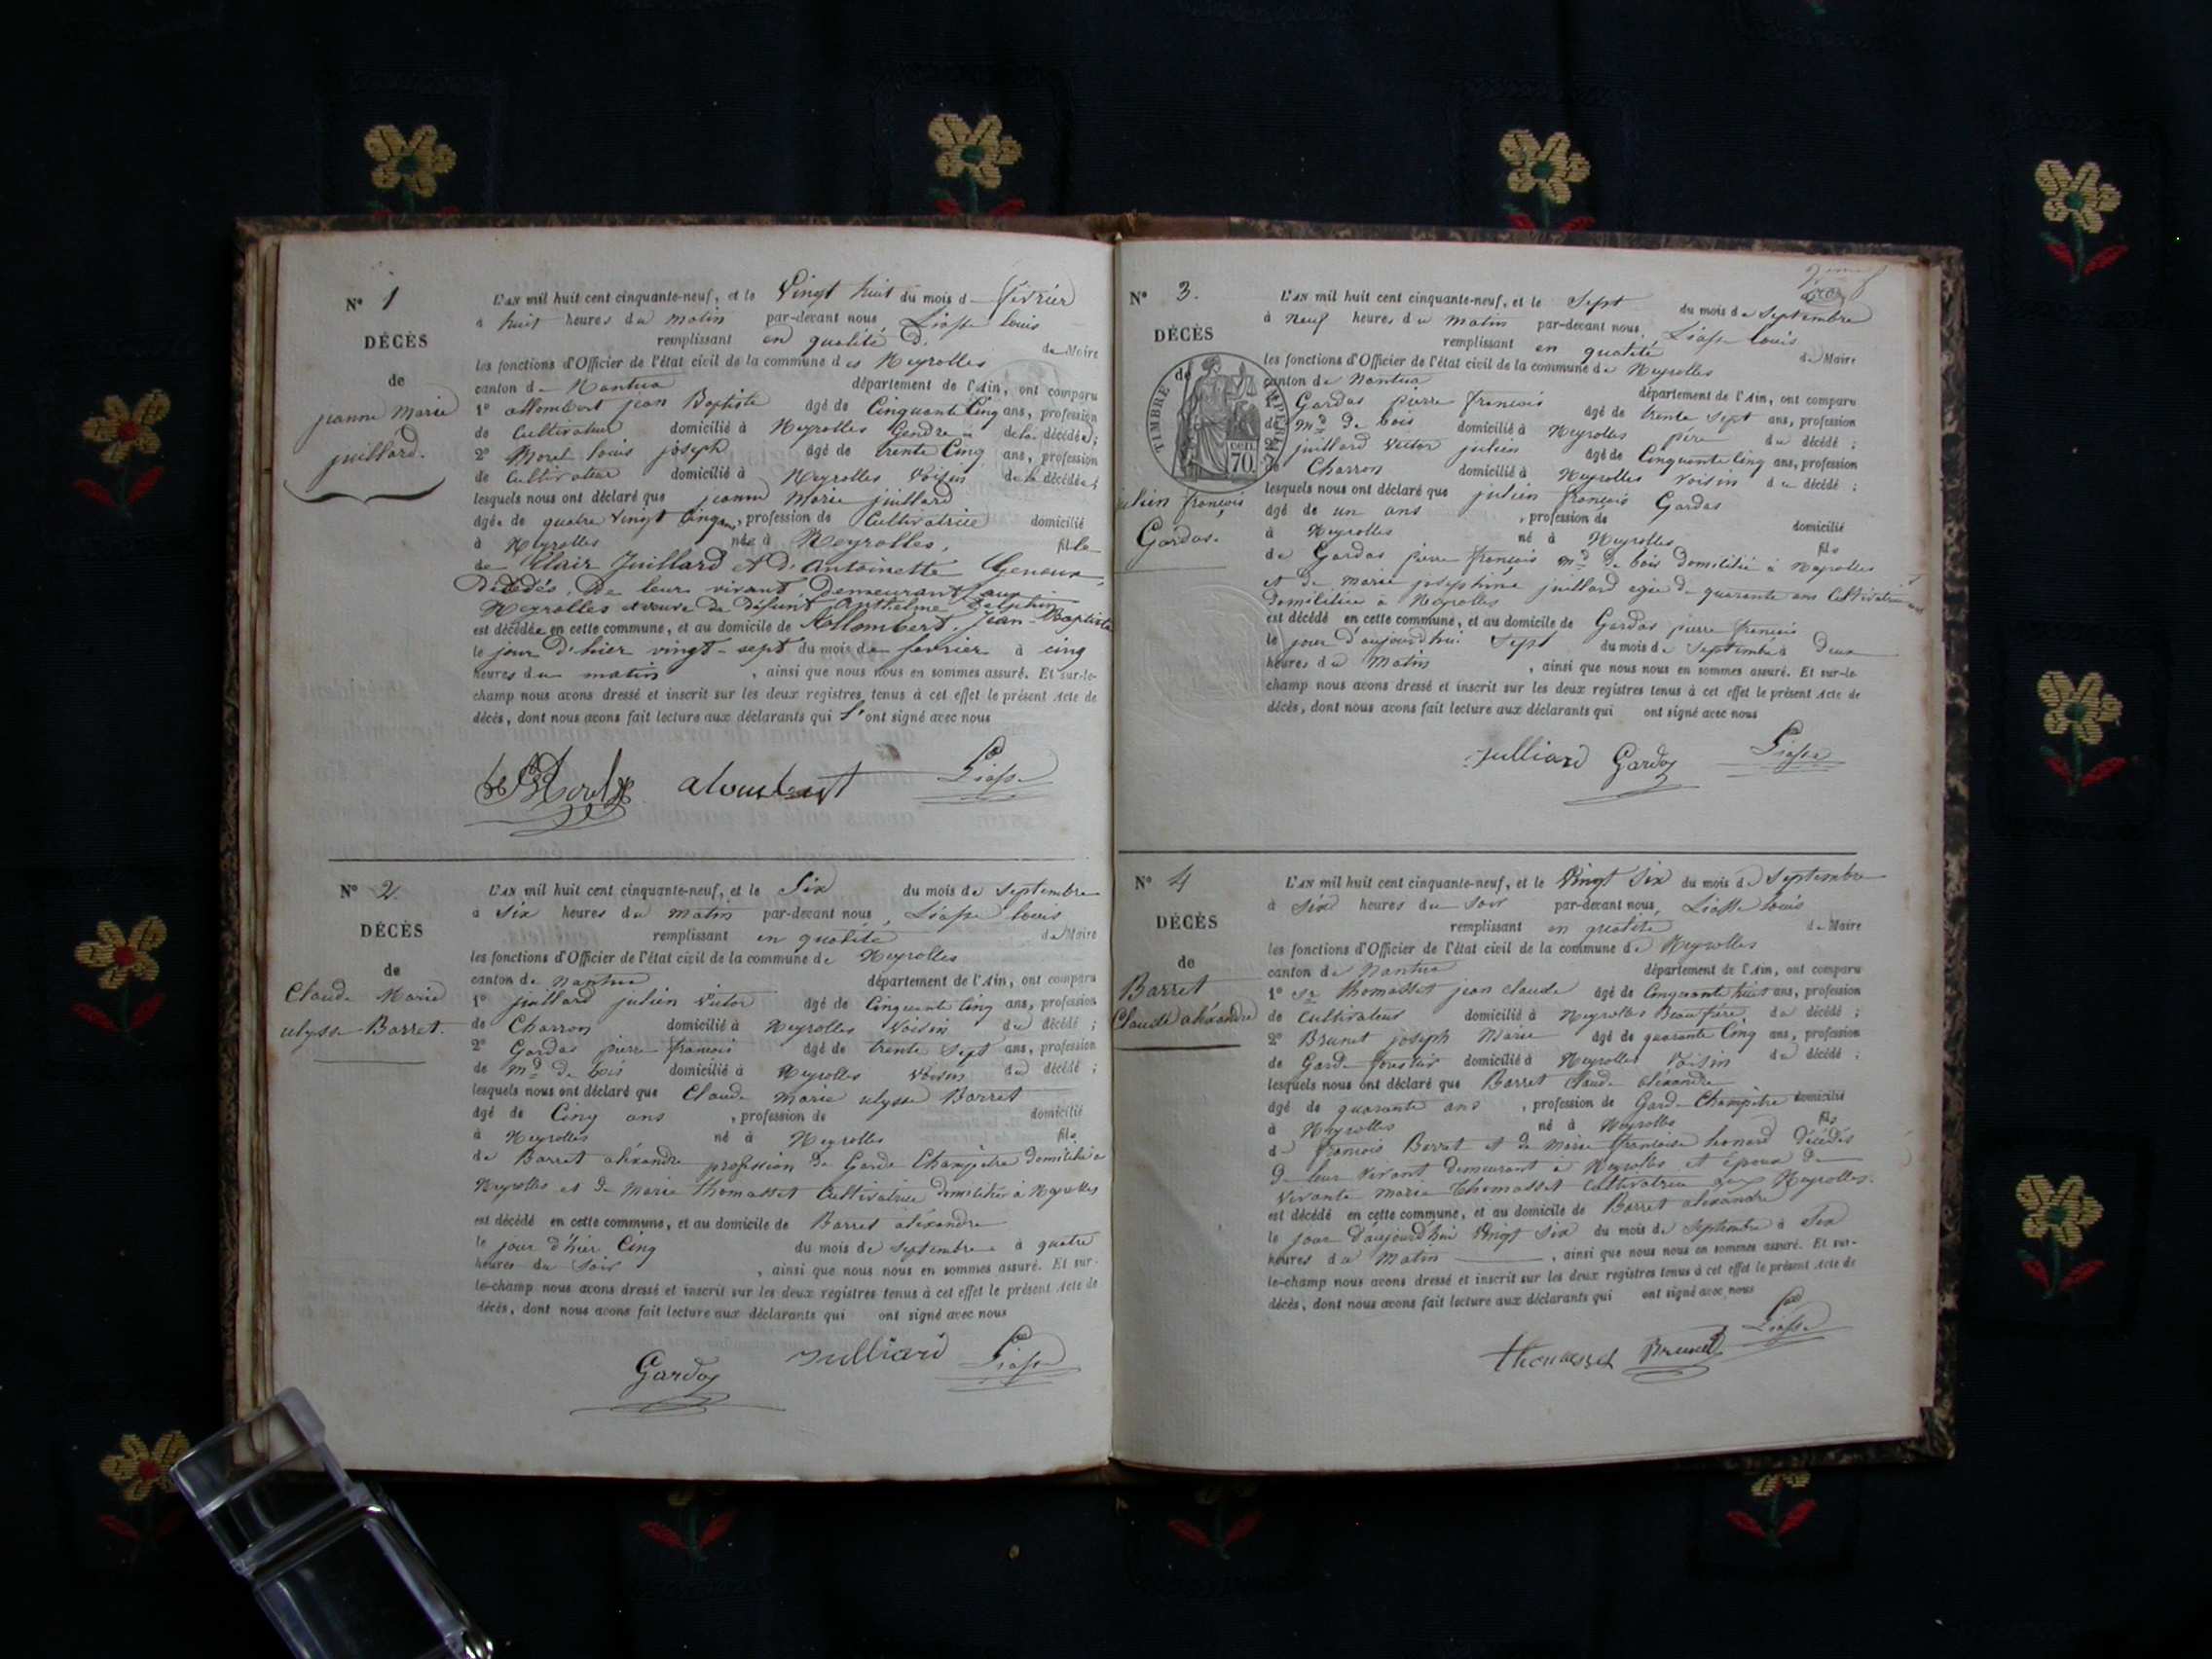 N° 1
DÉCÈS
de
jeanne Marie
juillard.
L'AN mil huit cent cinquante-neuf, et le Vingt huit du mois d février
à huit heures du matin par-devant nous Liasse louis
remplissant en qualité d. de Maire
les fonctions d'Officier de l'état civil de la commune des Neyrolles
canton de Nantua département de l'Ain, ont comparu
1° allombert jean Baptiste âgé de Cinquante Cinq ans, profession
de Cultivateur domicilié à Neyrolles Gendre à de la décédée;
2° Morel louis joseph âgé de trente Cinq ans, profession
de Cultivateur domicilié à Neyrolles Voisin de la décédée;
lesquels nous ont déclaré que jeanne Marie juillard
âgée de quatre Vingt Cinq ans, profession de Cultivatrice domicilié
à Neyrolles née à Neyrolles, fille
de Clair Juillard et d'Antoinette
Décédés, De leur vivant, Demeurant aux
Neyrolles et veuve de défunt Anthelme Delphin
est décédée en cette commune, et au domicile de Allombert Jean-Baptiste
le jour d'hier vingt-sept du mois de fevrier à cinq
heures du matin , ainsi que nous nous en sommes assuré. Et sur-le-
champ nous avons dressé et inscrit sur les deux registres tenus à cet effet le présent Acte de
décès, dont nous avons fait lecture aux déclarants qui l'ont signé avec nous
Morel aloubert Liasse
N° 2
DÉCÈS
de
Claude Marie
ulysse Barret.
L'AN mil huit cent cinquante-neuf, et le Six du mois de Septembre
à Six heures du matin par-devant nous, Liasse louis
remplissant en qualité de Maire
les fonctions d'Officier de l'état civil de la commune de Neyrolles
canton de Nantua département de l'Ain, ont comparu
1° juillard julien Victor âgé de Cinquante Cinq ans, profession
de Charron domicilié à Neyrolles Voisin du décédé ;
2° Gardas pierre francois âgé de trente Sept ans, profession
de md de bois domicilié à Neyrolles Voisin du décédé ;
lesquels nous ont déclaré que Claude Marie ulysse Barret
âgé de Cinq ans , profession de domicilié
à Neyrolles né à Neyrolles fils
de Barret aléxandre profession de Garde Champêtre domicilié à
Neyrolles et de Marie thomasset Cultivatrice domiciliée à Neyrolles
est décédé en cette commune, et au domicile de Barret aléxandre
le jour d'hier Cinq du mois de Septembre à quatre
heures du Soir , ainsi que nous nous en sommes assuré. Et sur-
le-champ nous avons dressé et inscrit sur les deux registres tenus à cet effet le présent Acte de
décès, dont nous avons fait lecture aux déclarants qui ont signé avec nous
Gardas Julliard Liasse
N° 3.
DÉCÈS
de
TIMBRE IMPERIAL
70 cen.
julien françois
Gardas.
L'AN mil huit cent cinquante-neuf, et le Sept du mois de Septembre
à Neuf heures du matin par-devant nous, Liasse louis
remplissant en qualité de Maire
les fonctions d'Officier de l'état civil de la commune de Neyrolles
canton de Nantua département de l'Ain, ont comparu
Gardas pierre francois âgé de trente Sept ans, profession
de md de bois domicilié à Neyrolles père du décédé ;
juillard Victor julien âgé de Cinquante Cinq ans, profession
Charron domicilié à Neyrolles Voisin du décédé ;
lesquels nous ont déclaré que julien françois Gardas
âgé de un ans , profession de domicilié
à Neyrolles né à Neyrolles fils
de Gardas pierre françois md de bois domicilié à Neyrolles
et de Marie joséphine juillard agée de quarante ans Cultivatrice
domiciliée à Neyrolles
est décédé en cette commune, et au domicile de Gardas pierre francois
le jour d'aujourd'hui Sept du mois de Septembre à deux
heures du Matin , ainsi que nous nous en sommes assuré. Et sur-le-
champ nous avons dressé et inscrit sur les deux registres tenus à cet effet le présent Acte de
décès, dont nous avons fait lecture aux déclarants qui ont signé avec nous
Julliard Gardas Liasse
N° 4
DÉCÈS
de
Barret
Claude aléxandre
L'AN mil huit cent cinquante-neuf, et le Vingt Six du mois de Septembre
à Six heures du Soir par-devant nous, Liasse louis
remplissant en qualité de Maire
les fonctions d'Officier de l'état civil de la commune de Neyrolles
canton de Nantua département de l'Ain, ont comparu
1° Sr thomasset jean claude âgé de Cinquante huit ans, profession
de Cultivateur domicilié à Neyrolles Beau frère, du décédé ;
2° Brunet joseph Marie âgé de quarante Cinq ans, profession
de Garde forestier domicilié à Neyrolles Voisin du décédé ;
lesquels nous ont déclaré que Barret claude aléxandre
âgé de quarante ans , profession de Garde Champêtre domicilié
à Neyrolles né à Neyrolles fils
de francois Barret et de Marie francoise leonard décédés
de leur Vivant demeurant à Neyrolles et époux de
vivante Marie Thomasset Cultivatrice aux Neyrolles.
est décédé en cette commune, et au domicile de Barret aléxandre
le jour d'aujourd'hui Vingt Six du mois de Septembre à Six
heures du Matin , ainsi que nous nous en sommes assuré. Et sur-
le-champ nous avons dressé et inscrit sur les deux registres tenus à cet effet le présent Acte de
décès, dont nous avons fait lecture aux déclarants qui ont signé avec nous
thomasset Brunet Liasse